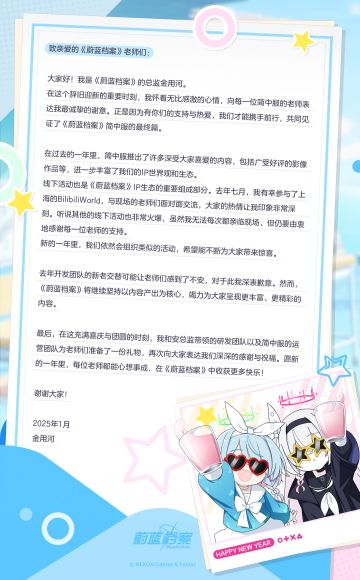 致亲爱的《蔚蓝档案》老师们：
大家好！我是《蔚蓝档案》的总监金用河。
在这个辞旧迎新的重要时刻，我怀着无比感激的心情，向每一位简中服的老师表
达我最诚挚的谢意。正是因为有你们的支持与热爱，我们才能携手前行，共同见
证了《蔚蓝档案》简中服的最终篇。
在过去的一年里，简中服推出了许多深受大家喜爱的内容，包括广受好评的影像
作品等，进一步丰富了我们的IP世界观和生态。
线下活动也是《蔚蓝档案》IP生态的重要组成部分。去年七月，我有幸参与了上
海的BilibiliWorld，与现场的老师们面对面交流，大家的热情让我印象非常深
刻。听说其他的线下活动也非常火爆，虽然我无法每次都亲临现场，但仍要由衷
地感谢每一位老师的支持。
新的一年里，我们依然会组织类似的活动，希望能不断为大家带来惊喜。
去年开发团队的新老交替可能让老师们感到了不安，对于此我深表歉意。然而，
《蔚蓝档案》将继续坚持以内容产出为核心，竭力为大家呈现更丰富、更精彩的
内容。
最后，在这充满喜庆与团圆的时刻，我和安总监带领的研发团队以及简中服的运
营团队为老师们准备了一份礼物，再次向大家表达我们深深的感谢与祝福。愿新
的一年里，每位老师都能心想事成，在《蔚蓝档案》中收获更多快乐！
谢谢大家！
2025年1月
金用河
蔚蓝档案
© NEXON Games & Yostar
HAPPY NEW YEAR